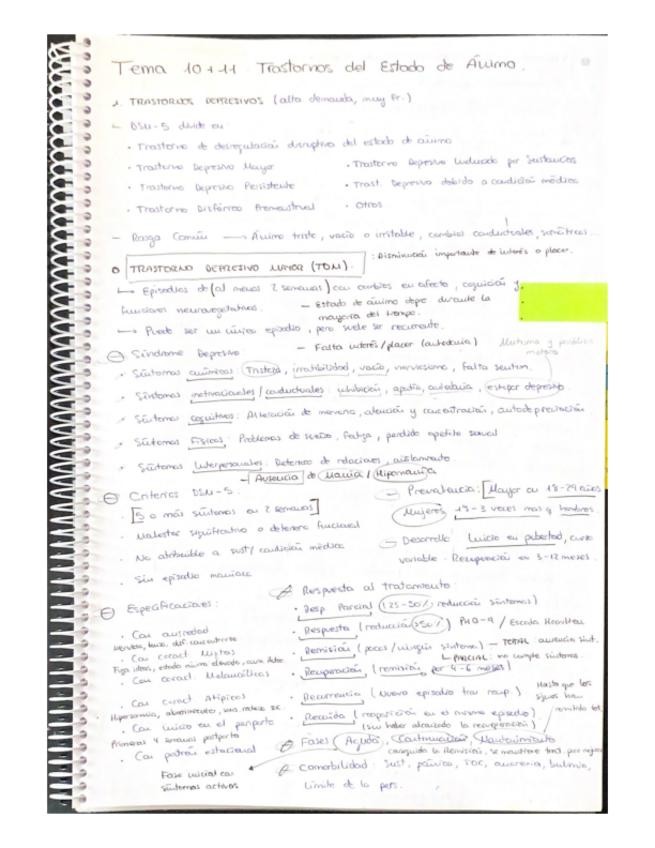 Tema 10+11 Trastornos del Estado de Ánimo.
1. TRASTORNOS DEPRESIVOS (alta demanda, muy fr.)
DSM-5 divide en
· Trastorno de desregulación disruptiva del estado de ánimo
· Trastorno Depresivo Mayor
· Trastorno Depresivo Inducido por Sustancias
· Trastorno Depresivo Persistente
· Trast. Depresivo debido a condición médica
· Trastorno Disfórico Premenstrual
· Otros
- Rasgo Común → Ánimo triste, vacío o irritable, cambios conductuales, somáticos.
TRASTORNO DEPRESIVO MAYOR (TDM).
: Disminución importante de interés o placer.
Episodios de (al menos 2 semanas) con cambios en afecto, cognición y
funciones neurovegetativas.
- Estado de ánimo depre durante la
mayoría del tiempo.
Puede ser un único episodio, pero suele ser recurrente.
- Falta interés/placer (anhedonia)
Síndrome Depresivo
Síntomas anímicos: Tristeza, irritabilidad, vacío, nerviosismo, falta sentim.
Síntomas motivacionales/conductuales: inhibición, apatía, anhedonia, estupor depresivo.
Síntomas cognitivos: Alteración de memoria, atención y concentración, autodepreciación
Síntomas Físicos: Problemas de sueño, fatiga, perdida apetito sexual
Síntomas Interpersonales: Deterioro de relaciones, aislamiento
- Ausencia de Manía / Hipomanía
Criterios DSM-5.
- Prevalencia: Mayor en 18-29 años
· [5 o más síntomas en 2 semanas]
Mujeres 1'5-3 veces mas q hombres.
· Malestar significativo o deterioro funcional
- Desarrollo: Inicio en pubertad, curso
variable. Recuperación en 3-12 meses.
· No atribuible a sust/ condición médica
· Sin episodio maníaco
Respuesta al tratamiento:
Especificaciones:
· Resp Parcial (25-50% reducción síntomas)
· Con ansiedad
· Respuesta (reducción >50%) PHQ-9 / Escala Hamilton
· Con caract Mixtas
· Remisión (pocos/ningún síntoma) - TOTAL: ausencia sínt.
PARCIAL: no cumple síntomas.
· Con caract. Melancólicas
· Recuperación (remisión, por 4-6 meses)
· Con caract Atípicas
· Recurrencia (Nuevo episodio tras recup.)
· Recaída (reaparición en el mismo episodio)
(sin haber alcanzado la recuperación)
· Con inicio en el periparto
Primeras 4 semanas postparto
Fases Aguda, Continuación, Mantenimiento
· Con patrón estacional
conseguida la Remisión, se mantiene trat. por
Fase inicial con
síntomas activos
Comorbilidad: Sust, pánico, TOC, anorexia, bulimia,
Límite de la pers.